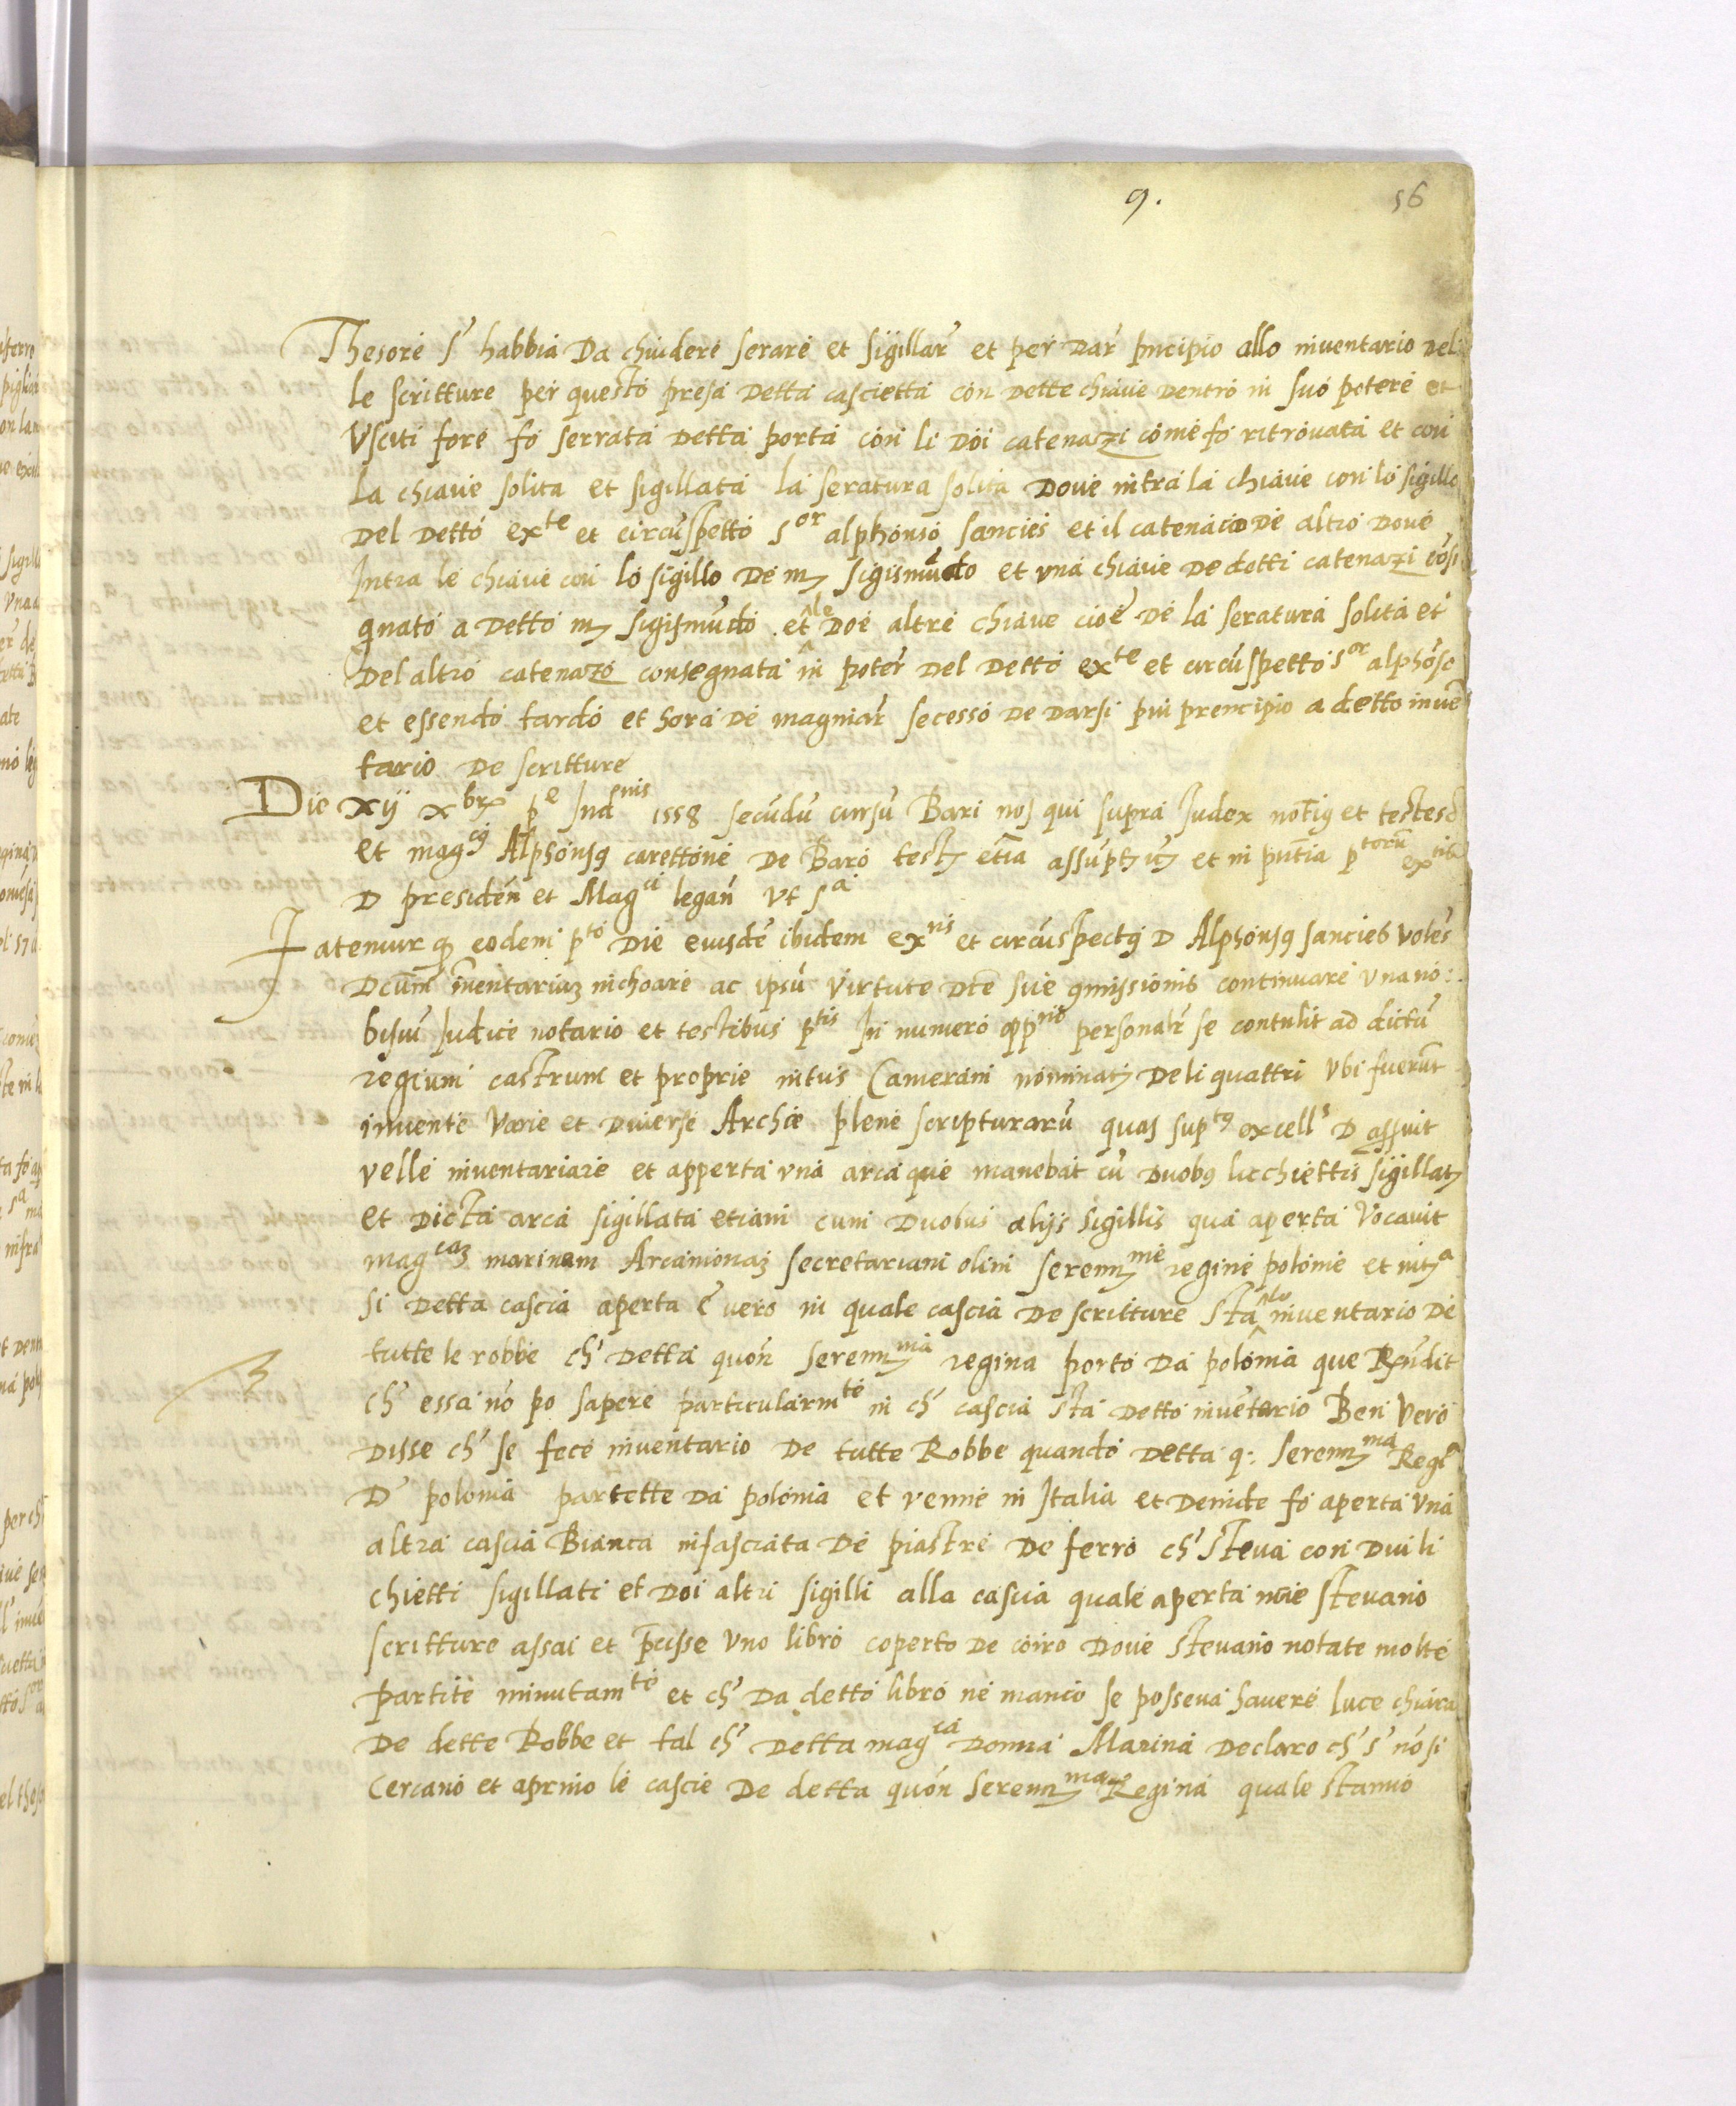 9.
56
Thesore s' habbia da chiudere serare et sigillar et per dar pncipio allo inventario del
le scritture per questo presa detta cascietta con dette chiave dentro in suo potere et
Usciti fore fo serrata detta porta con li doi catenazi come fo ritrovata et con
la chiave solita et sigillata la seratura solita dove intra la chiave con lo sigillo
del detto ex.te et circuspetto s.or alphonso sancies et il catenacio de altro dove
Intra le chiave con lo sigillo de m. sigismudo et una chiave de detti catenazi cosi
gnato a detto m. sigismudo et le doe altre chiave cioè de la seratura solita et
del altro catenazo consegnata in poter del detto ex.te et circuspetto s.or alphoso
et essendo tardo et hora de magniar se cessò de darsi più prencipio a detto inve
tario de scritture
Die xij xbr. p.e Ind.nis 1558 secudu cursu Bari nos qui supra Iudex et testes
et mag.cus Alphonsus carettone de Baro et in p.torum
D presiden et Mag.ci legan Ut s.a
Fatemur q eodem p.to die eiusde ibidem ex.tis et circuspectus D Alphonsus sancies voles
inventarium inchoare ac ipsu virtute dte sue comissionis continuare una no:
biscu Iudice notario et testibus p.tis In numero personalr se contulit ad dictu
regium castrum et proprie intus Cameram nominat. deli quattri Ubi fuerut
invente varie et diverse Arche plene scripturaru quas sup.tus excell.s D assuit
velle inventariare et apperta una arca que manebat cu duobus lucchiettis sigillat.
et dicta arca sigillata etiam cum duobus alijs sigillis qua aperta vocavit
mag.cam marinam Arcamonam secretariam olim seren.me regine polonie et
si detta cascia aperta è vero in quale cascia de scritture sta lo inventario de
tutte le robbe ch' detta quon seren.ma regina portò da polonia que Rndit
ch' essa no po sapere particularm.te in ch' cascia sta detto invetario Ben vero
disse ch' se fece inventario de tutte Robbe quando detta q: seren.ma Reg.
D' polonia partette da polonia et venne in Italia et deinde fo aperta una
altra cascia Bianca infasciata de piastre de ferro ch' steva con dui li
chietti sigillati et doi altri sigilli alla cascia quale aperta nce stevano
scritture assai et uno libro coperto de coiro dove stevano notate molte
partite minutam.te et ch' da detto libro ne manco se posseva havere luce chiara
de dette Robbe et tal ch' detta mag.ca donna Marina declaro ch' s' no si
cercano et aprino le cascie de detta quon seren.ma Regina quale stanno